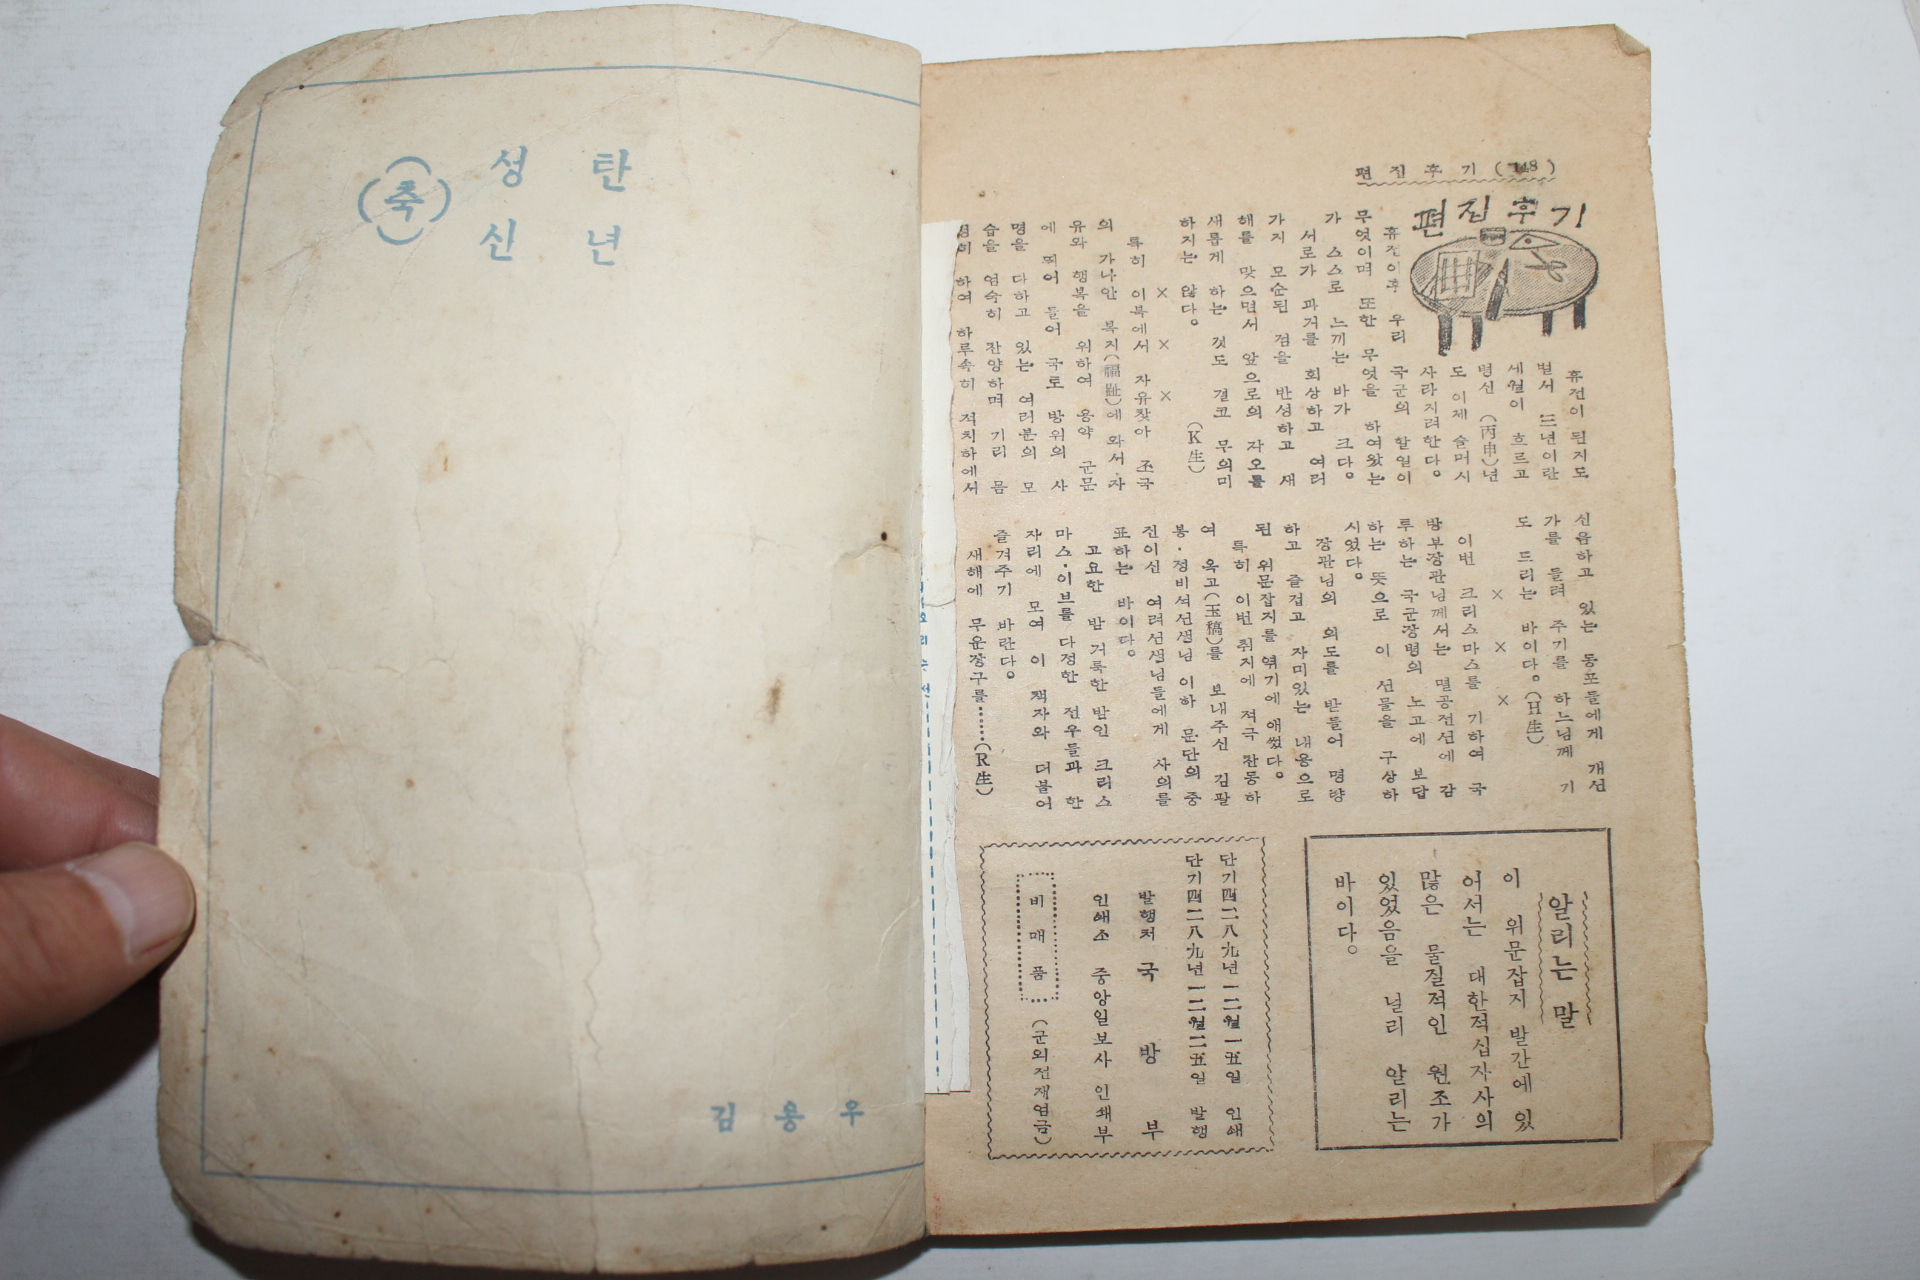 (축)
성 탄
신 년
김 용 우
편 집 후 기 (148)
편집후기
휴전이 된지도
벌서 三년이란
세월이 흐르고
병신 (丙申)년
도 이제 슬며시
사라지려한다。
휴전이후 우리 국군의 할일이
무엇이며 또한 무엇을 하여왔는
가 스스로 느끼는 바가 크다。
서로가 과거를 회상하고 여러
가지 모순된 점을 반성하고 새
해를 맞으면서 앞으로의 자오를
새롭게 하는 것도 결코 무의미
하지는 않다。 (K生)
× × ×
특히 이북에서 자유찾아 조국
의 가나안 복지(福趾)에 와서 자
유와 행복을 위하여 용약 군문
에 뛰어 들어 국토 방위의 사
명을 다하고 있는 여러분의 모
습을 엄숙히 찬양하며 기리 몸
하여 하루속히 적치하에서
신음하고 있는 동포들에게 개선
가를 들려 주기를 하느님께 기
도 드리는 바이다。(H生)
× × ×
이번 크리스마스를 기하여 국
방부장관님께서는 멸공전선에 감
투하는 국군장병의 노고에 보답
하는 뜻으로 이 선물을 구상하
시었다。
장관님의 의도를 받들어 명량
하고 즐겁고 자미있는 내용으로
된 위문잡지를 엮기에 애썼다。
특히 이번 취지에 적극 찬동하
여 옥고(玉稿)를 보내주신 김팔
봉·정비석선생님 이하 문단의 중
진이신 여러선생님들에게 사의를
표하는 바이다。
고요한 밤 거룩한 밤인 크리스
마스·이브를 다정한 전우들과 한
자리에 모여 이 책자와 더불어
즐겨주기 바란다。
새해에 무운장구를……(R生)
알리는 말
이 위문잡지 발간에 있
어서는 대한적십자사의
많은 물질적인 원조가
있었음을 널리 알리는
바이다。
단기四二八九년 一二월一五일 인쇄
단기四二八九년 一二월二五일 발행
발행처 국 방 부
인쇄소 중앙일보사 인쇄부
비 매 품 (군외전재엄금)